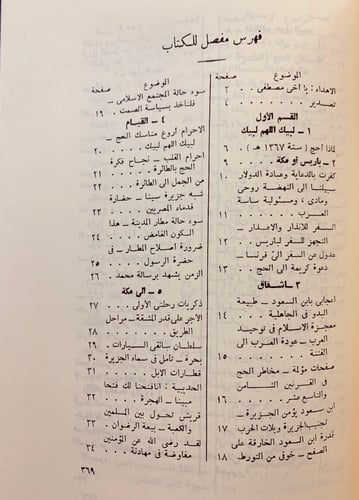 فهرس مفصل للكتاب
الموضوع صفحة
الاهداء : يا اخي مصطفى . . ٣
تصدير . . . . . . ٤
القسم الأول
١ - لبيك اللهم لبيك
لماذا احج ( سنة ١٣٦٧ هـ ) . ٦
٢ - باريس أو مكة . . . . ٩
كفرت بالدعاية وصادة الدولار ١٠
سبيلنا الى النهضة روحي
ومادي ، ومسئولية ساسة
العرب . . . . . ١١
السفر للانذار والاعذار -
التجهز للسفر لباريس . . ١٢
عدول عن السفر الى فرنسا -
دعوة كريمة الى الحج . . ١٣
٣ - اشفاق
اعجابي بابن السعود - طبيعة
البدو في الجاهلية . . . ١٤
معجزة الاسلام في توحيد
العرب - عودة العرب الى
الفتنة . . . . . ١٥
صفحات مؤلمة - مخاطر الحج
في القرنين الثامن
والتاسع عشر . . . . ١٦
ابن سعود يؤمن الجزيرة -
تجنيب الجزيرة ويلات الحرب ١٧
قدرة ابن السعود الخارقة على
الصفح - خوفي من التورط ١٨
الموضوع صفحة
سوء حالة المجتمع الاسلامي -
فلنأخذ بسياسة الصمت . ١٩
٤ - القيام
الاحرام أروع مناسك الحج -
لبيك اللهم لبيك . . . . ٢٠
احرام القلب - نجاح فكرة
الحج بالطائرة . . . . ٢١
من الجمل الى الطائرة . . ٢٢
شبه جزيرة سينا - حضارة
قدماء المصريين . . . . ٢٣
سوء حالة مطار المدينة - هذا
الكون الغامض . . . . ٢٤
ضرورة اصلاح المطار - في
حضرة الرسول . . . . ٢٥
الزمن يشهد برسالة محمد . ٢٦
٥ - الى مكة
ذكريات رحلتي الأولى . . ٢٧
الأجر على قدر المشقة - مراحل
الطريق . . . . . ٢٨
سلطان سائقي السيارات . . ٢٩
بحرة - تأمل في سماء الجزيرة ٣٠
قطارات الابل . . . . ٣١
الحديبية : انا فتحنا لك فتحا
مبينا - الهجرة . . . . ٣٢
قريش تحول بين المسلمين
والكعبة - بيعة الرضوان . ٣٣
لقد رضي الله عن المؤمنين
مفاوضة في مهادنة . . . ٣٤
٣٦٩